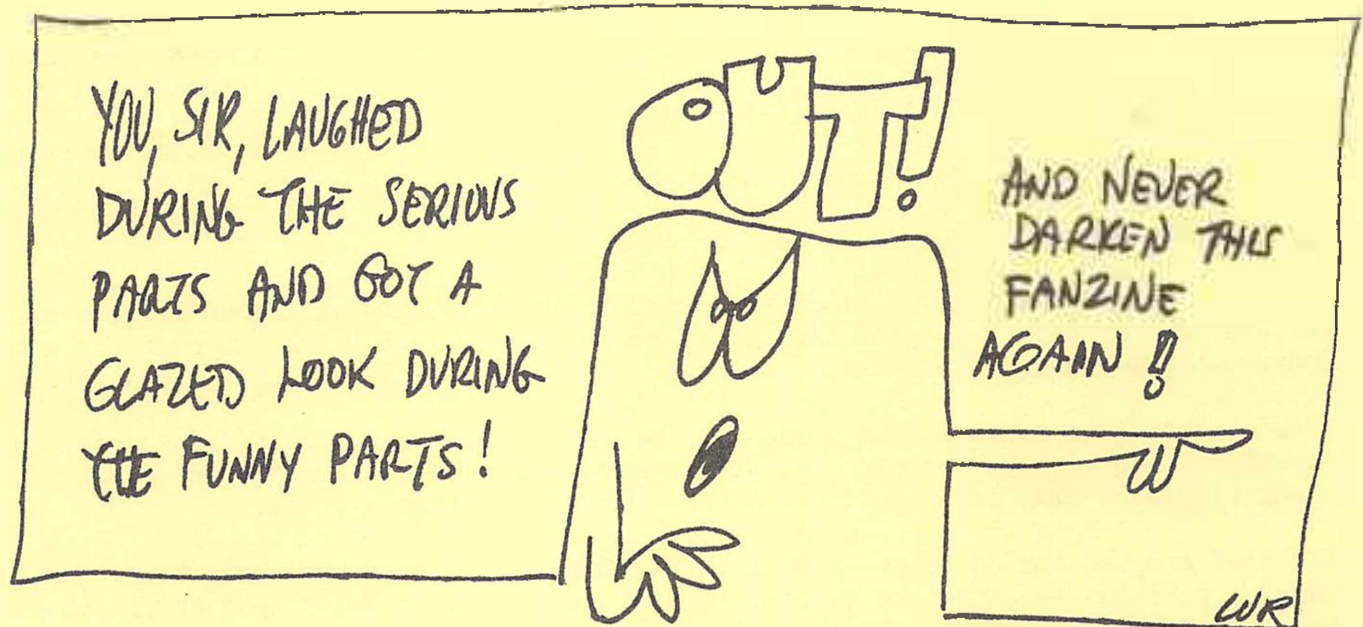 YOU, SIR, LAUGHED
DURING THE SERIOUS
PARTS AND GOT A
GLAZED LOOK DURING
THE FUNNY PARTS!
OUT!
AND NEVER
DARKEN THIS
FANZINE
AGAIN !!
WR